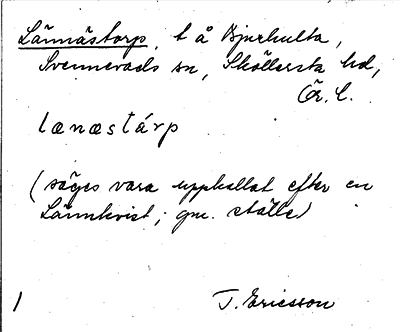 Lännästorp, t å Bjurhulta,
Svennevads sn, Sköllersta hd,
Ör. l.
lænæstárp
(säges vara uppkallat efter en
Lännkvist; gm. ställe)
1
T. Ericsson